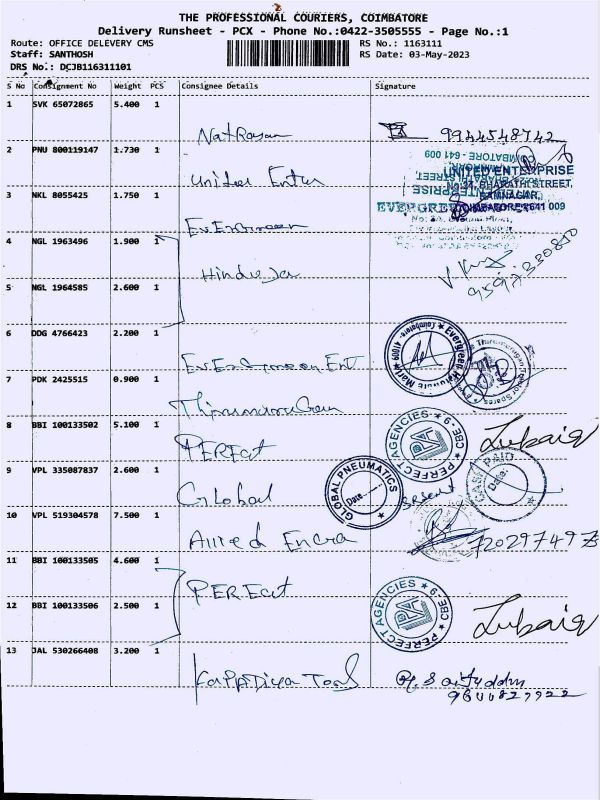 THE PROFESSIONAL COURIERS, COIMBATORE
Delivery Runsheet - PCX - Phone No.:0422-3505555 - Page No.:1
Route: OFFICE DELEVERY CMS
Staff: SANTHOSH
DRS No.: DCJB116311101
RS No.: 1163111
RS Date: 03-May-2023
S No Consignment No Weight PCS Consignee Details Signature
1 SVK 65072865 5.400 1
Natrayan 9944548742
2 PNU 800119147 1.730 1
United Enter
UNITED ENTERPRISE
No:34, BHARATHI STREET,
COIMBATORE - 641 009
3 NKL 8055425 1.750 1
EverGreen
EVERGREEN
4 NGL 1963496 1.900 1
Hinduja
5 NGL 1964585 2.600 1
6 DDG 4766423 2.200 1
EverGreen Ent
7 PDK 2425515 0.900 1
Thirumurugan
8 BBI 100133502 5.100 1
PERFect
PERFECT AGENCIES CBE-9
Zubair
9 VPL 335087837 2.600 1
Global
GLOBAL PNEUMATICS
Date
10 VPL 519304578 7.500 1
Allied
11 BBI 100133505 4.600 1
PERFect
12 BBI 100133506 2.500 1
PERFECT AGENCIES CBE-9
Zubair
13 JAL 530266408 3.200 1
Tools